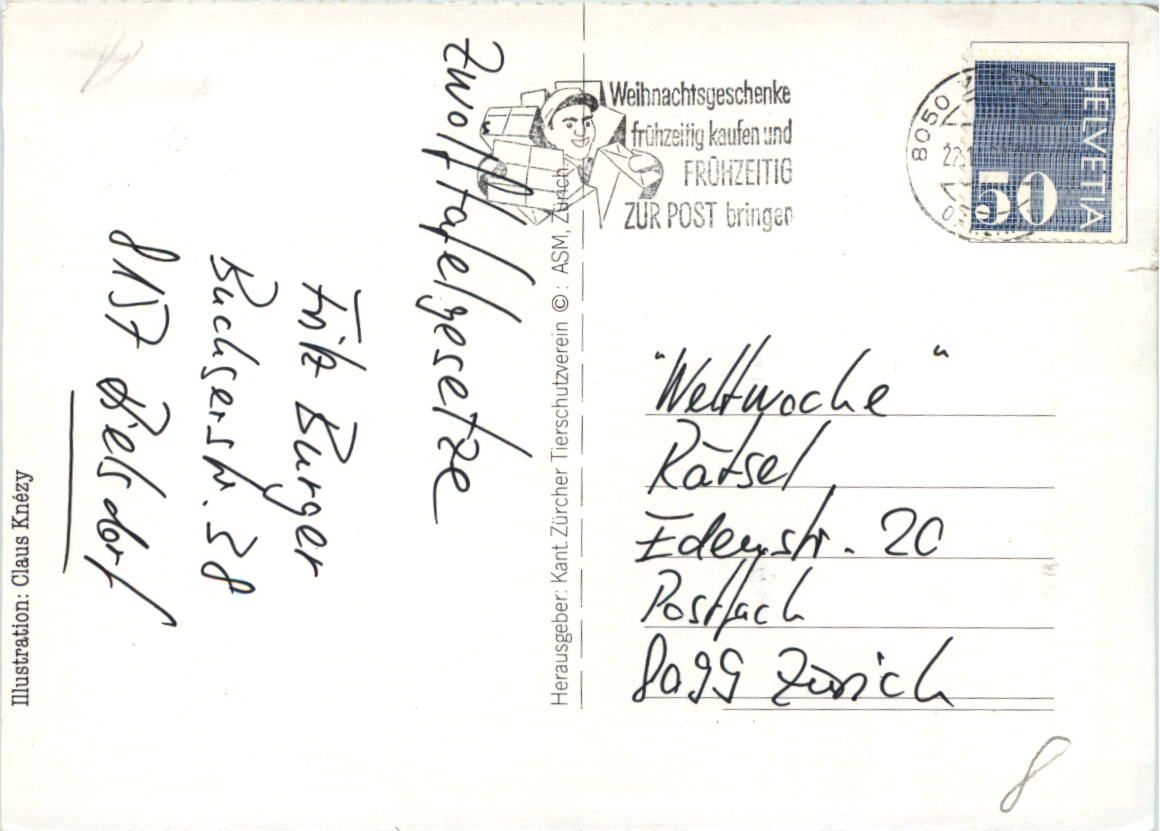 Zwölftafelgesetze
Fritz Burger
Buchserstr. 38
8157 Dielsdorf
Illustration: Claus Knézy
Herausgeber: Kant. Zürcher Tierschutzverein © : ASM, Zürich
Weihnachtsgeschenke
frühzeitig kaufen und
FRÜHZEITIG
ZUR POST bringen
8050
22.
HELVETIA
50
"Weltwoche"
Rätsel
Edenstr. 20
Postfach
8099 Zürich
8